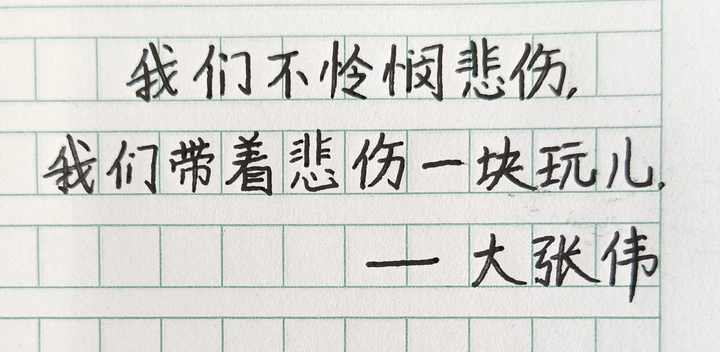 我们不怜悯悲伤,
我们带着悲伤一块玩儿.
— 大张伟